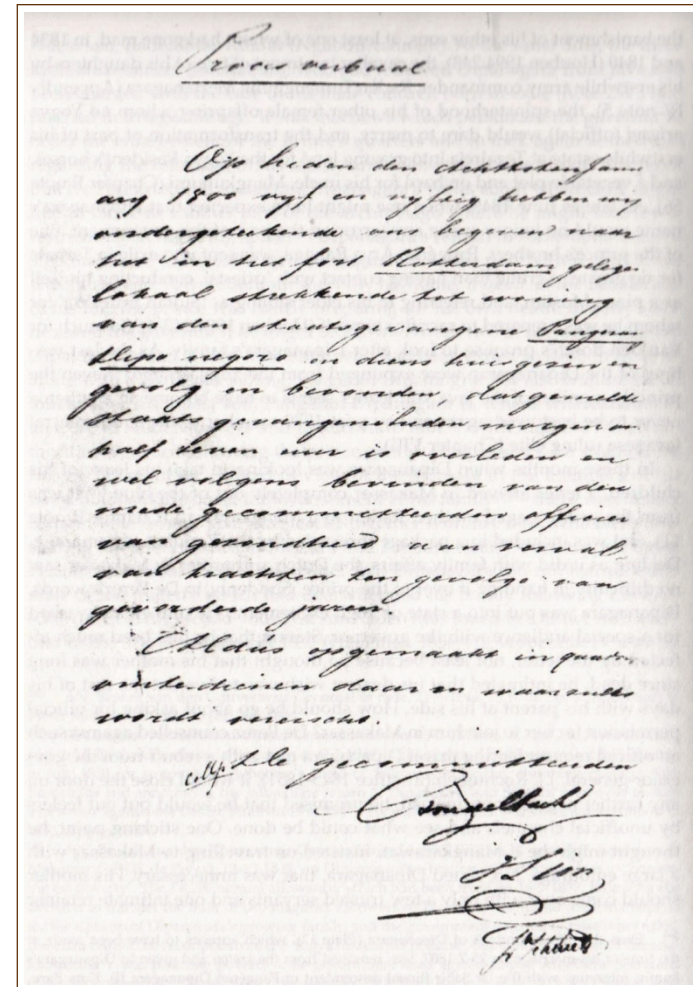 Proces verbaal
Op heden den Achtsten Janu
arij 18 vijf en vijftig hebben wij
ondergeteekende ons begeven naar
het in het fort Rotterdam gelegen
lokaal strekkende tot woning
van den staatsgevangen
negoro en
dat gemelde
staatsgevangen heden morgen om
half zeven uur is overleden en
wel volgens bevinden van den
mede gecommitteerden officier
van gezondheid aan verval
van krachten ten gevolge van
gevorderde jaren.
Aldus opgemaakt in
waar zulks
wordt vereischt.
De gecommitteerden